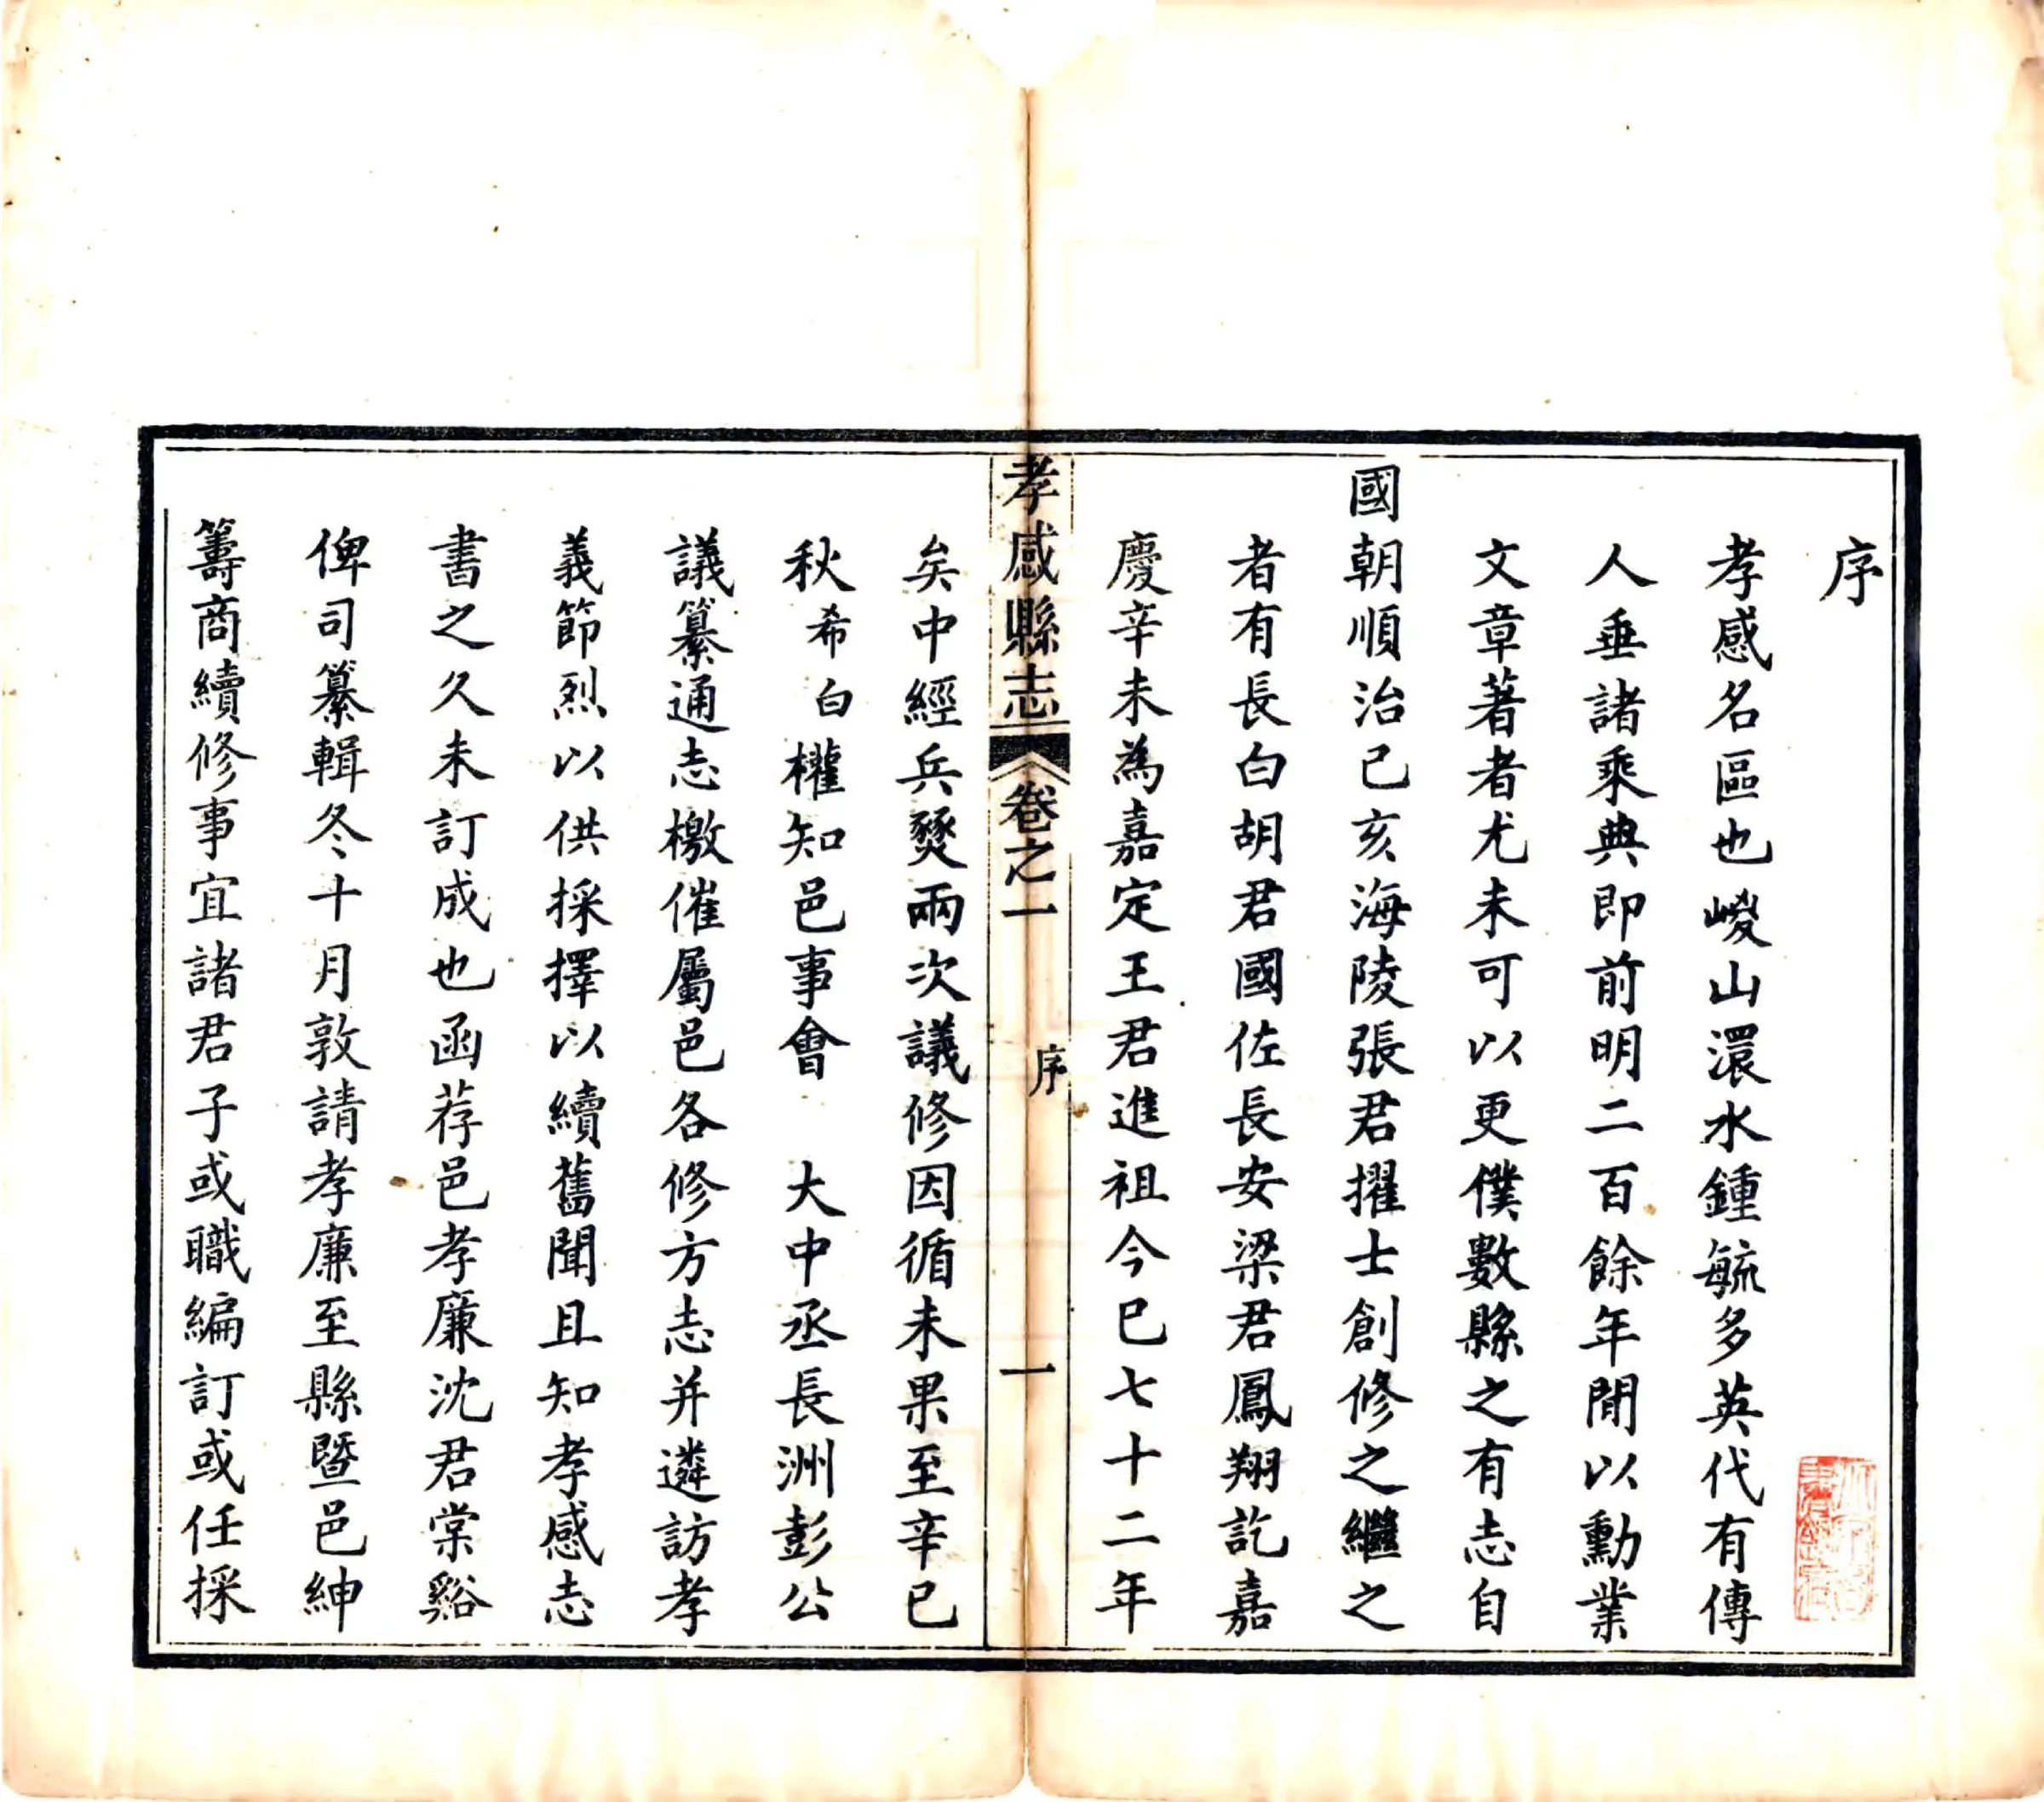 序
孝感名區也峻山濵水鍾毓多英代有傳
人垂諸乘典即前明二百餘年間以勳業
文章著者尤未可以更僕數縣之有志自
國朝順治己亥海陵張君擢士創修之繼之
者有長白胡君國佐長安梁君鳳翔訖嘉
慶辛未為嘉定王君進祖今已七十二年
孝感縣志
卷之一
序
一
矣中經兵燹兩次議修因循未果至辛巳
秋希白權知邑事會 大中丞長洲彭公
議纂通志檄催屬邑各修方志并遴訪孝
義節烈以供採擇以續舊聞且知孝感志
書之久未訂成也函荐邑孝廉沈君棠谿
俾司纂輯冬十月敦請孝廉至縣暨邑紳
籌商續修事宜諸君子或職編訂或任採